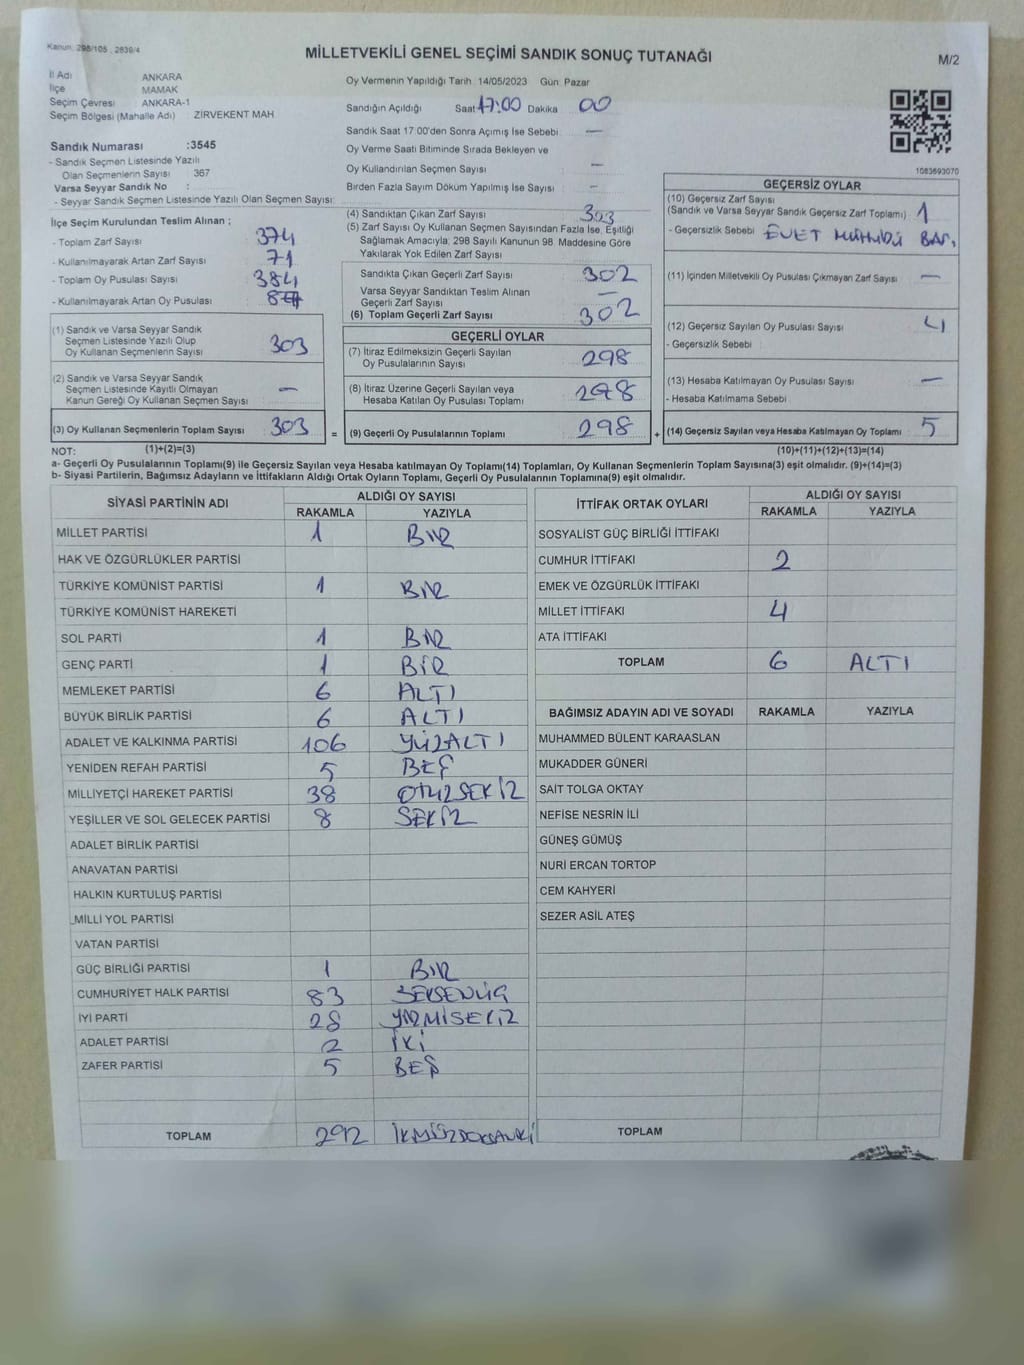 Kanun: 298/105 , 2839/4
MİLLETVEKİLİ GENEL SEÇİMİ SANDIK SONUÇ TUTANAĞI
M/2
İl Adı ANKARA
İlçe MAMAK
Seçim Çevresi ANKARA-1
Seçim Bölgesi (Mahalle Adı) ZİRVEKENT MAH
Oy Vermenin Yapıldığı Tarih 14/05/2023 Gün: Pazar
Sandığın Açıldığı Saat 17:00 Dakika 00
Sandık Saat 17:00'den Sonra Açılmış İse Sebebi —
Oy Verme Saati Bitiminde Sırada Bekleyen ve
Oy Kullandırılan Seçmen Sayısı —
Birden Fazla Sayım Döküm Yapılmış İse Sayısı –
Sandık Numarası :3545
- Sandık Seçmen Listesinde Yazılı
Olan Seçmenlerin Sayısı 367
Varsa Seyyar Sandık No :
- Seyyar Sandık Seçmen Listesinde Yazılı Olan Seçmen Sayısı:
İlçe Seçim Kurulundan Teslim Alınan ;
- Toplam Zarf Sayısı 374
- Kullanılmayarak Artan Zarf Sayısı 71
- Toplam Oy Pusulası Sayısı 384
- Kullanılmayarak Artan Oy Pusulası
(1) Sandık ve Varsa Seyyar Sandık
Seçmen Listesinde Yazılı Olup
Oy Kullanan Seçmenlerin Sayısı 303
(2) Sandık ve Varsa Seyyar Sandık
Seçmen Listesinde Kayıtlı Olmayan
Kanun Gereği Oy Kullanan Seçmen Sayısı —
(3) Oy Kullanan Seçmenlerin Toplam Sayısı 303
(4) Sandıktan Çıkan Zarf Sayısı 303
(5) Zarf Sayısı Oy Kullanan Seçmen Sayısından Fazla İse, Eşitliği
Sağlamak Amacıyla; 298 Sayılı Kanunun 98. Maddesine Göre
Yakılarak Yok Edilen Zarf Sayısı
Sandıkta Çıkan Geçerli Zarf Sayısı 302
Varsa Seyyar Sandıktan Teslim Alınan
Geçerli Zarf Sayısı —
(6) Toplam Geçerli Zarf Sayısı 302
GEÇERLİ OYLAR
(7) İtiraz Edilmeksizin Geçerli Sayılan
Oy Pusulalarının Sayısı 298
(8) İtiraz Üzerine Geçerli Sayılan veya
Hesaba Katılan Oy Pusulası Toplamı 298
= (9) Geçerli Oy Pusulalarının Toplamı 298
1083693070
GEÇERSİZ OYLAR
(10) Geçersiz Zarf Sayısı
(Sandık ve Varsa Seyyar Sandık Geçersiz Zarf Toplamı) 1
- Geçersizlik Sebebi EVET
(11) İçinden Milletvekili Oy Pusulası Çıkmayan Zarf Sayısı —
(12) Geçersiz Sayılan Oy Pusulası Sayısı 4
- Geçersizlik Sebebi
(13) Hesaba Katılmayan Oy Pusulası Sayısı —
- Hesaba Katılmama Sebebi
+ (14) Geçersiz Sayılan veya Hesaba Katılmayan Oy Toplamı : 5
NOT: (1)+(2)=(3) (10)+(11)+(12)+(13)=(14)
a- Geçerli Oy Pusulalarının Toplamı(9) ile Geçersiz Sayılan veya Hesaba katılmayan Oy Toplamı(14) Toplamları, Oy Kullanan Seçmenlerin Toplam Sayısına(3) eşit olmalıdır. (9)+(14)=(3)
b- Siyasi Partilerin, Bağımsız Adayların ve İttifakların Aldığı Ortak Oyların Toplamı, Geçerli Oy Pusulalarının Toplamına(9) eşit olmalıdır.
SİYASİ PARTİNİN ADI ALDIĞI OY SAYISI
RAKAMLA YAZIYLA
MİLLET PARTİSİ 1 BİR
HAK VE ÖZGÜRLÜKLER PARTİSİ
TÜRKİYE KOMÜNİST PARTİSİ 1 BİR
TÜRKİYE KOMÜNİST HAREKETİ
SOL PARTİ 1 BİR
GENÇ PARTİ 1 BİR
MEMLEKET PARTİSİ 6 ALTI
BÜYÜK BİRLİK PARTİSİ 6 ALTI
ADALET VE KALKINMA PARTİSİ 106 YÜZALTI
YENİDEN REFAH PARTİSİ 5 BEŞ
MİLLİYETÇİ HAREKET PARTİSİ 38 OTUZSEKİZ
YEŞİLLER VE SOL GELECEK PARTİSİ 8 SEKİZ
ADALET BİRLİK PARTİSİ
ANAVATAN PARTİSİ
HALKIN KURTULUŞ PARTİSİ
MİLLİ YOL PARTİSİ
VATAN PARTİSİ
GÜÇ BİRLİĞİ PARTİSİ 1 BİR
CUMHURİYET HALK PARTİSİ 83 SEKSENÜÇ
İYİ PARTİ 28 YİRMİSEKİZ
ADALET PARTİSİ 2 İKİ
ZAFER PARTİSİ 5 BEŞ
TOPLAM 292
İTTİFAK ORTAK OYLARI ALDIĞI OY SAYISI
RAKAMLA YAZIYLA
SOSYALİST GÜÇ BİRLİĞİ İTTİFAKI
CUMHUR İTTİFAKI 2
EMEK VE ÖZGÜRLÜK İTTİFAKI
MİLLET İTTİFAKI 4
ATA İTTİFAKI
TOPLAM 6 ALTI
BAĞIMSIZ ADAYIN ADI VE SOYADI RAKAMLA YAZIYLA
MUHAMMED BÜLENT KARAASLAN
MUKADDER GÜNERİ
SAİT TOLGA OKTAY
NEFİSE NESRİN İLİ
GÜNEŞ GÜMÜŞ
NURİ ERCAN TORTOP
CEM KAHYERİ
SEZER ASİL ATEŞ
TOPLAM